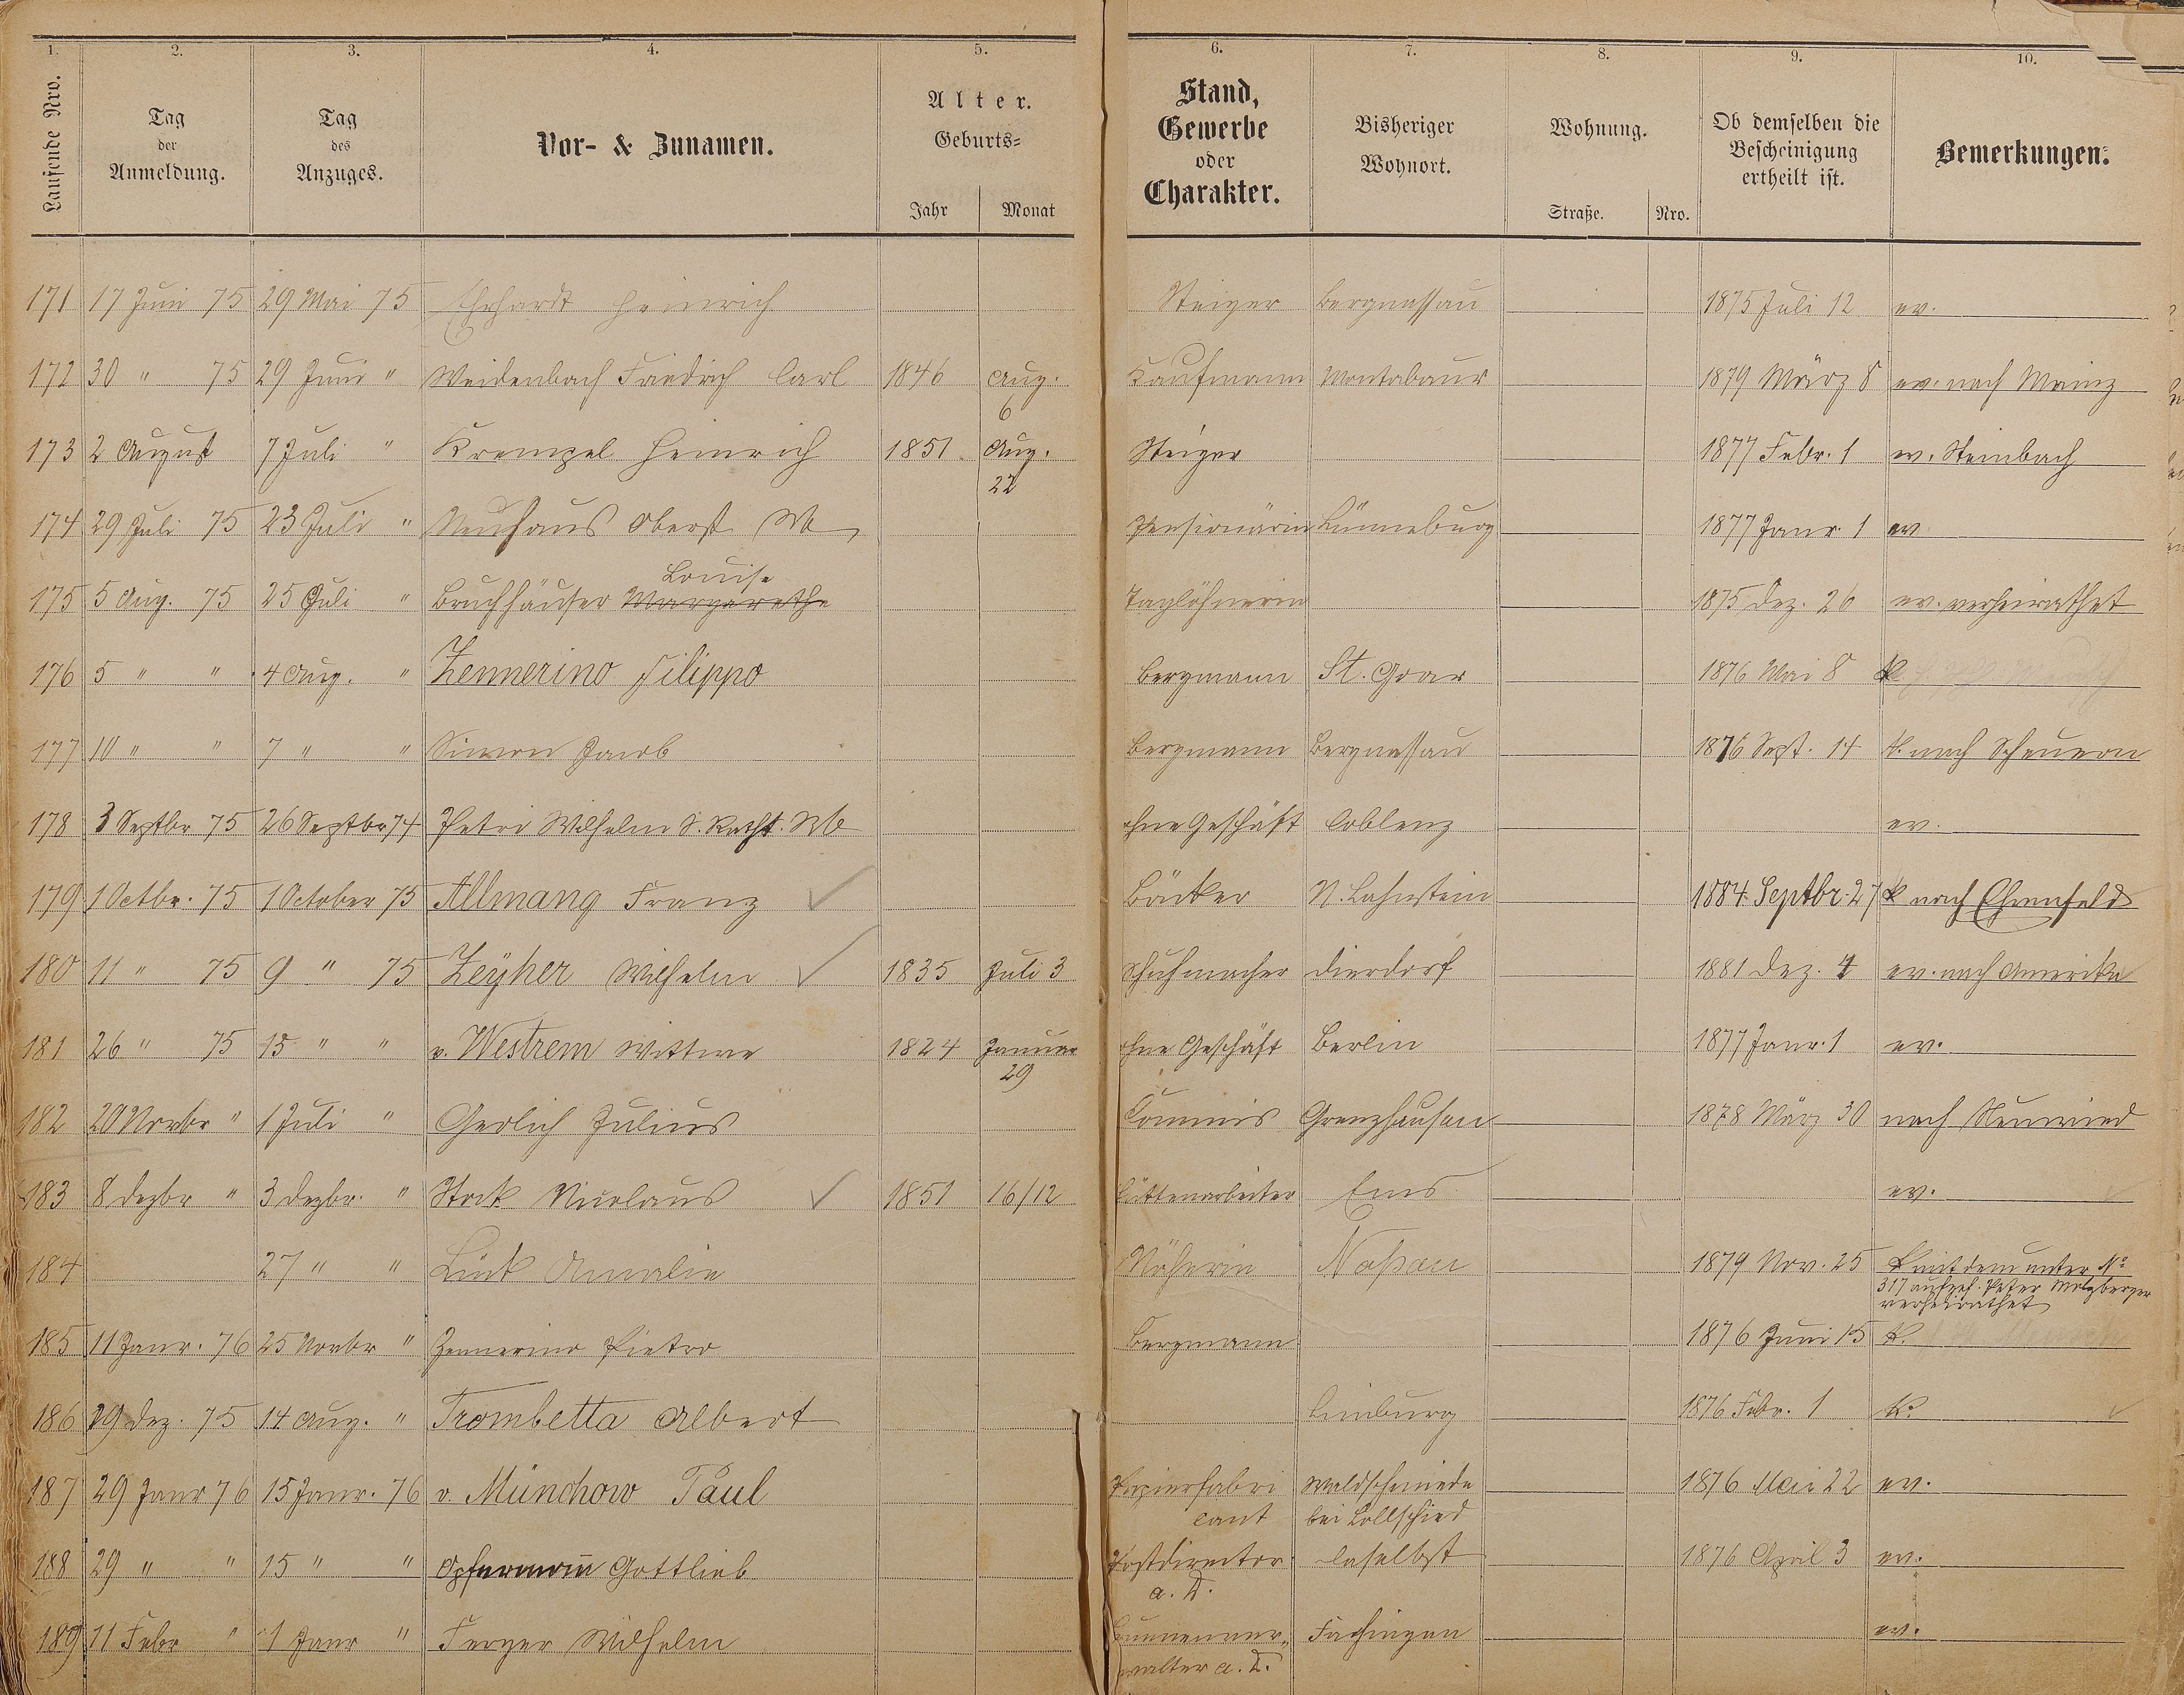 1. 2. 3. 4. 5. 6. 7. 8. 9. 10.
Laufende Nro. Tag der Anmeldung. Tag des Anzuges. Vor- & Zunamen. Alter. Geburts- Jahr Monat Stand, Gewerbe oder Charakter. Bisheriger Wohnort. Wohnung. Straße. Nro. Ob demselben die Bescheinigung ertheilt ist. Bemerkungen.
171 17 Juni 75 29 Mai 75 Ehrhardt Heinrich Steiger Bergnassau 1875 Juli 12 ev.
172 30 " 75 29 Juni " Weidenbach Friedrich Carl 1846 Aug. 6 Kaufmann Montabaur 1879 März 8 ev. nach Mainz
173 2 August 7 Juli " Krempel Heinrich 1851 Aug. 22 Steiger 1877 Febr. 1 ev. Steinbach
174 29 Juli 75 23 Juli " Neuhaus Oberst Wb Pensionärin Lünneburg 1877 Janr. 1 ev
175 5 Aug. 75 25 Juli " Bruchhäuser Margarethe Louise Taglöhnerin 1875 Dez. 26 ev. verheirathet
176 5 " " 4 Aug. " Zennerino Filippo Bergmann St. Goar 1876 Mai 8 k.
177 10 " " 7 " " Simon Jacob Bergmann Bergnassau 1876 Sept. 14 k. nach Scheuern
178 3 Septbr 75 26 Septbr 74 Petri Wilhelm S. Rath. Wb ohne Geschäft Coblenz ev.
179 1 Octbr. 75 1 October 75 Allmang Franz ✓ Bäcker N. Lahnstein 1884 Septbr. 27 k nach Ehrenfeld
180 11 " 75 9 " 75 Zeyher Wilhelm ✓ 1835 Juli 3 Schuhmacher Dierdorf 1881 Dez. 4 ev. nach Amerika
181 26 " 75 15 " " v. Westrem Wittwe 1824 Januar 29 ohne Geschäft Berlin 1877 Janr. 1 ev.
182 20 Novbr " 1 Juli " Gerlich Julius Commis Grenzhausen 1878 März 30 nach Neuwied
183 8 Dezbr " 3 Dezbr. " Stock Nicolaus ✓ 1851 16/12 Hüttenarbeiter Ems ev.
184 27 " " Lück Amalie Näherin Naßau 1879 Nov. 25 k mit dem unter No
317 aufgef. Peter Metzberger
verheirathet
185 11 Janr. 76 25 Novbr " Zennerino Pietro Bergmann 1876 Juni 15 k.
186 29 Dez. 75 14 Aug. " Trombetta Albert Limburg 1876 Febr. 1 k.
187 29 Janr 76 15 Janr. 76 v. Münchow Paul Papierfabri Waldschmiede 1876 Mai 22 ev.
cant bei Lollschied
188 29 " " 15 " " Opfermann Gottlieb Postdirector daselbst 1876 April 3 ev.
a. D.
189 11 Febr " 1 Janr " Ferger Wilhelm Brunnenver- Fachingen ev.
walter a. D.